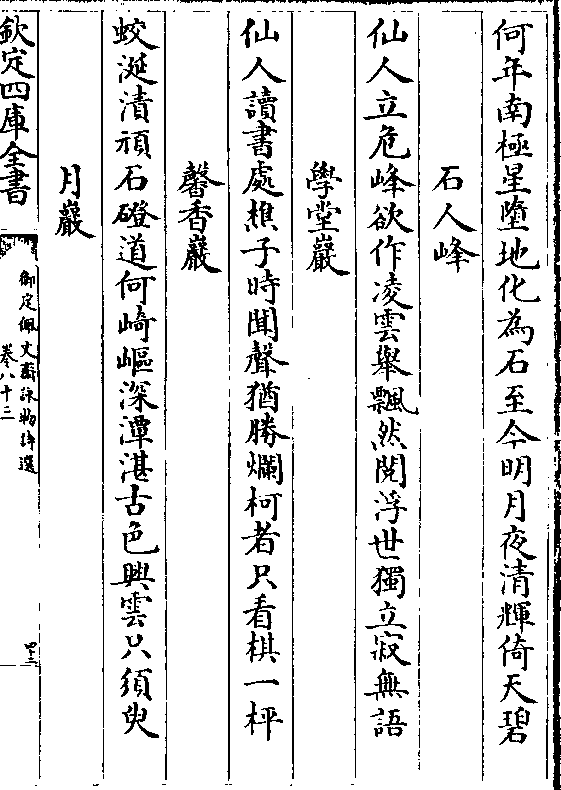 何年南極星墮地化為石至今明月夜清輝倚天碧
石人峰
仙人立危峰欲作凌雲舉飄然閱浮世獨立寂無語
學堂巖
仙人讀書處樵子時聞聲猶勝爛柯者只看棋一枰
馨香巖
蛟涎漬頑石磴道何崎嶇深潭湛古色興雲只須臾
月巖
欽定四庫全書
御定佩文齋詠物詩選
卷八十三
四十三